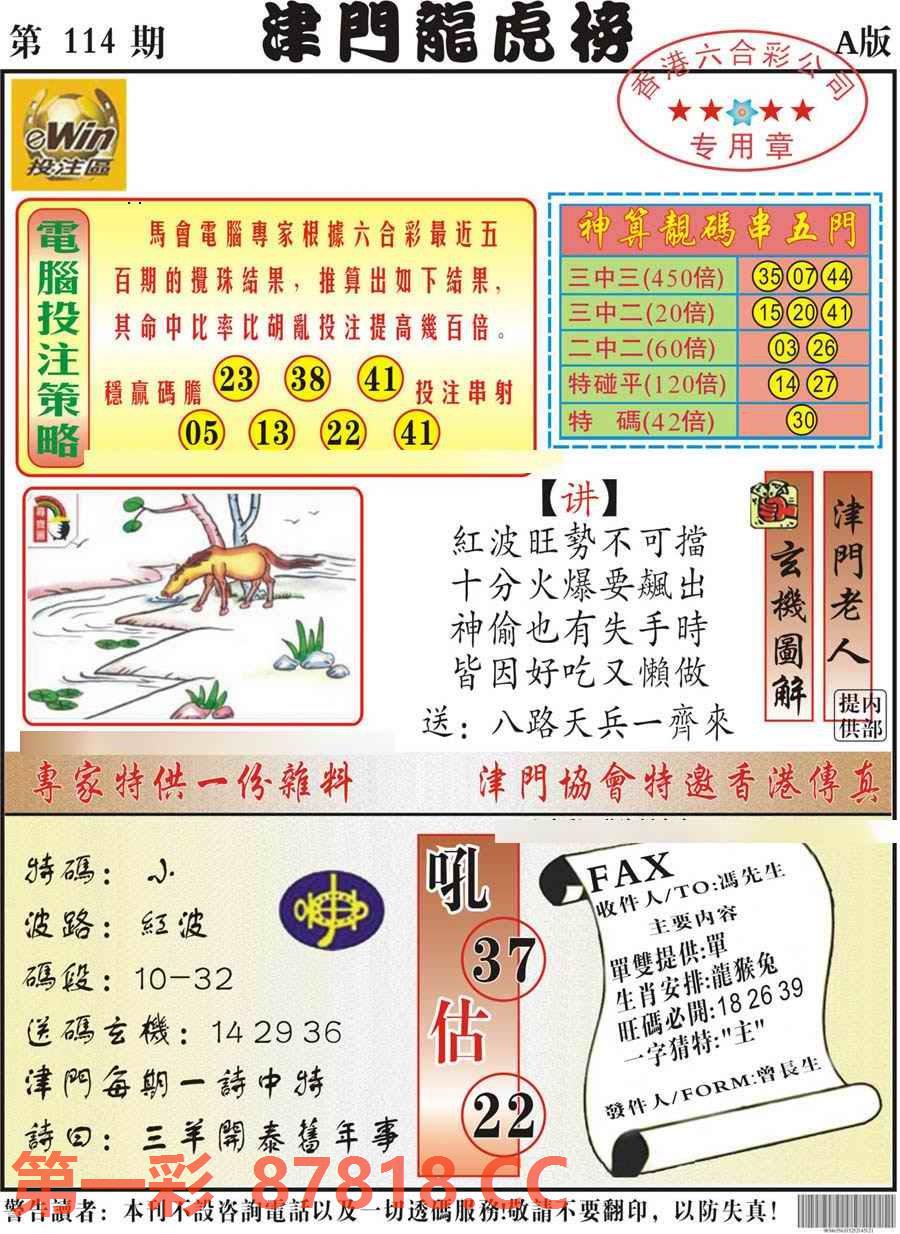 第 114 期
津門龍虎榜
A版
香港六合彩公司
专用章
eWin
投注區
電腦投注策略
馬會電腦專家根據六合彩最近五
百期的攪珠結果，推算出如下結果，
其命中比率比胡亂投注提高幾百倍。
穩贏碼膽 23 38 41 投注串射
05 13 22 41
神算靚碼串五門
三中三(450倍) 35 07 44
三中二(20倍) 15 20 41
二中二(60倍) 03 26
特碰平(120倍) 14 27
特 碼(42倍) 30
尋寶圖
【讲】
紅波旺勢不可擋
十分火爆要飆出
神偷也有失手時
皆因好吃又懶做
送：八路天兵一齊來
玄機圖解
津門老人
内部提供
專家特供一份雜料
津門協會特邀香港傳真
特碼：小
波路：紅波
碼段：10-32
送碼玄機：14 29 36
津門每期一詩中特
詩曰：三羊開泰舊年事
吼
37
估
22
FAX
收件人/TO:馮先生
主要内容
單雙提供:單
生肖安排:龍猴兔
旺碼必開:18 26 39
一字猜特:"主"
發件人/FORM:曾長生
第一彩 87818.CC
警告讀者：本刊不設咨詢電話以及一切透碼服務!敬請不要翻印，以防失真!